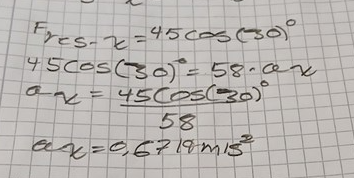 Fres-x=45cos(30)°
45cos(30)°=58·ax
ax=45cos(30)°
58
ax=0,6719m/s²